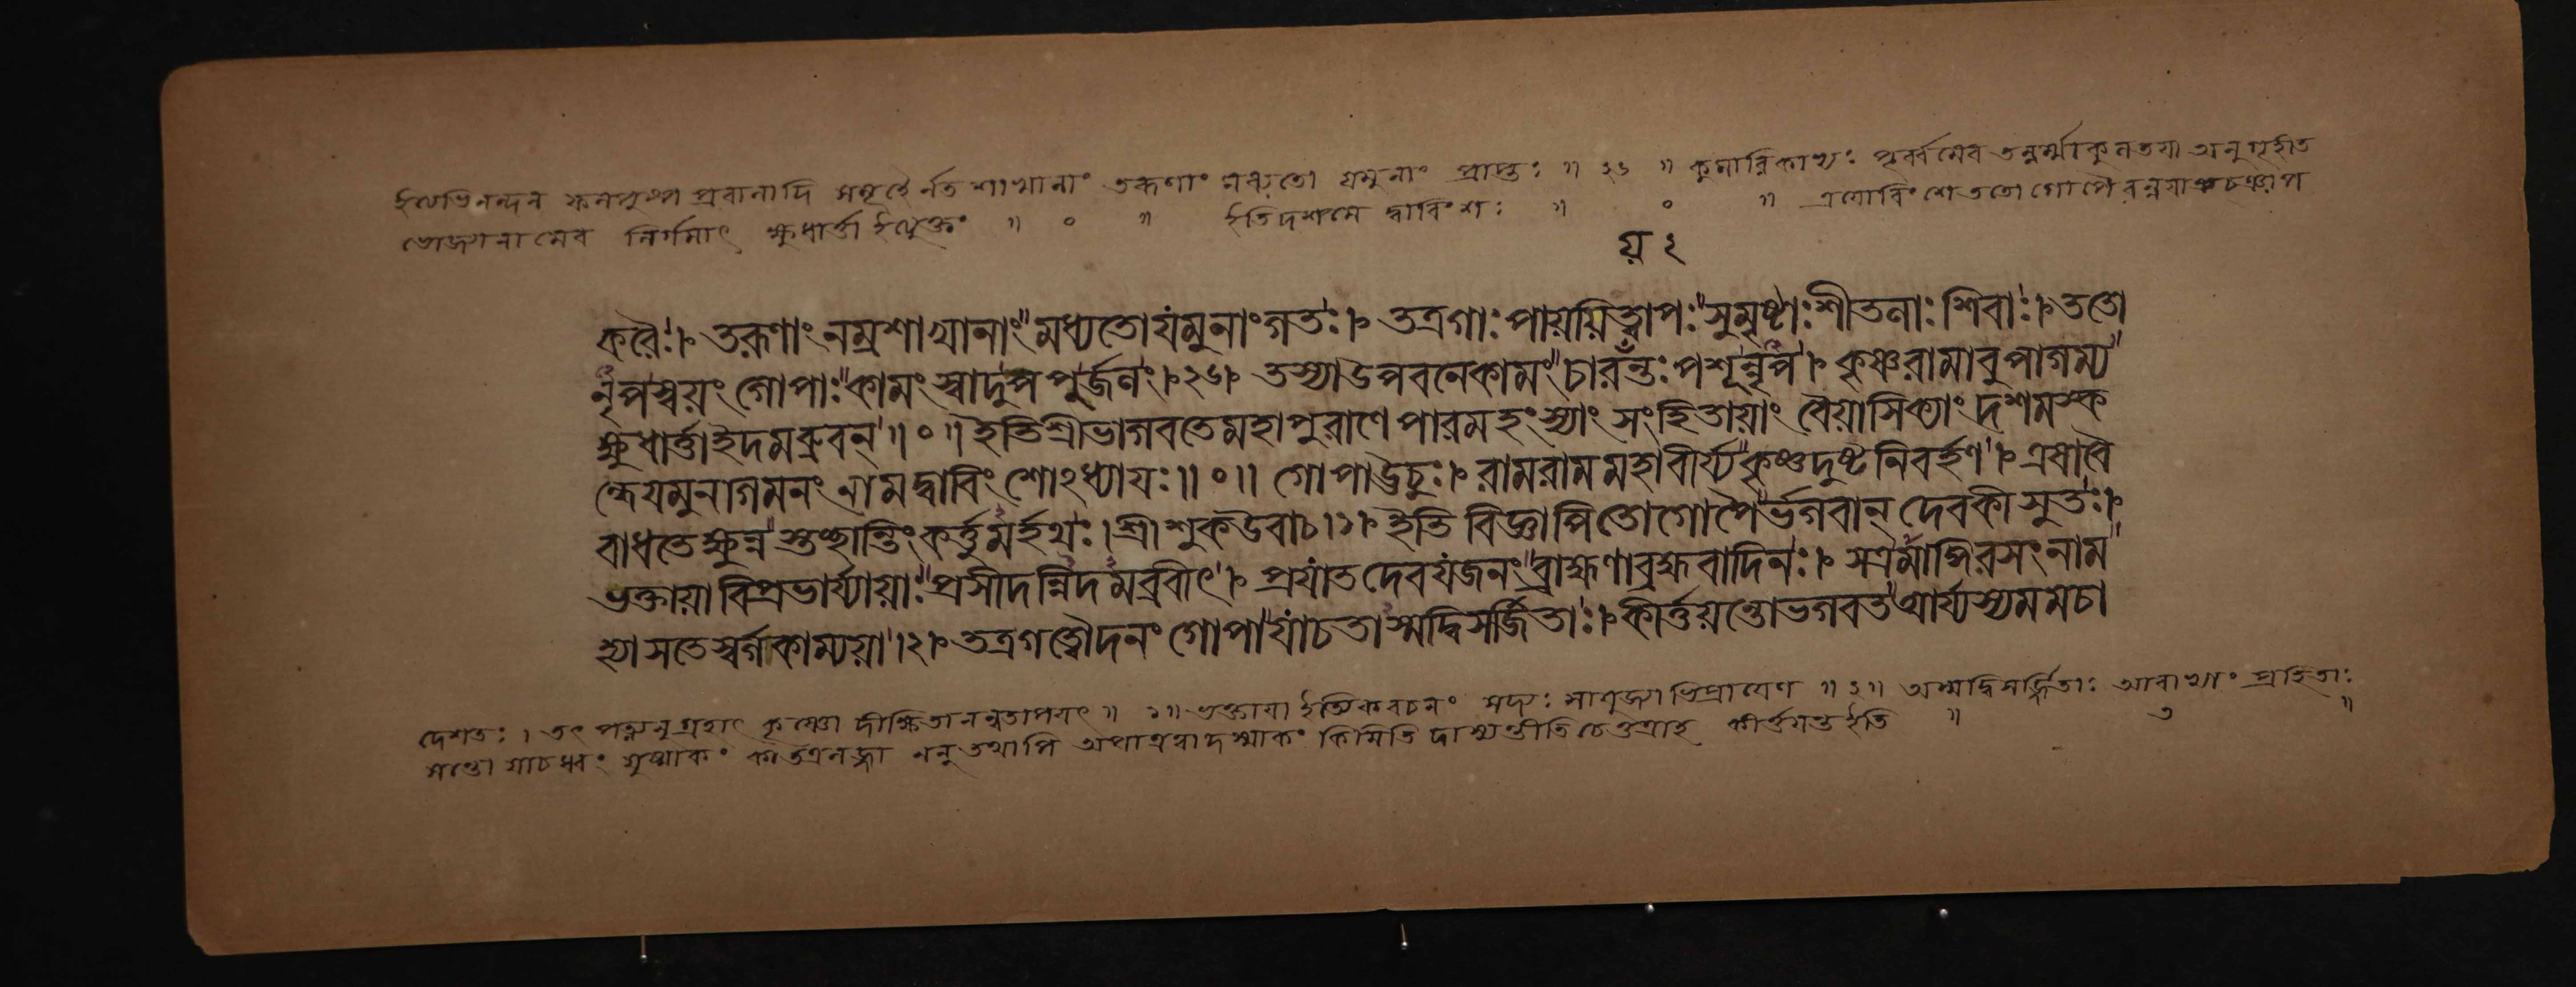 ইত্যভিনন্দন ফলপুষ্প প্রবালাদি সমূহৈর্নত শাখানাং তরূণাং মধ্যতো যমুনাং প্রাপ্তঃ ॥ ২৬ ॥ পূর্ব্বমেব
ভোজনামেব নির্গমাৎ ক্ষুধার্ত্তা ইত্যুক্তং ॥ ० ॥ ইতিদশমে দ্বাবিংশঃ ॥ ० ॥ ত্রয়োবিংশে ততো গোপৈ
য় ২
করৈঃ। তরূণাং নম্রশাখানাং মধ্যতোযমুনাংগতঃ। তত্রগাঃ পায়য়িত্বাপঃ সুমৃষ্টাঃ শীতলাঃ শিবাঃ। ততো
নৃপস্বয়ং গোপাঃ কামং স্বাদুপপুর্জলং।২৬। তস্যাউপবনেকামং চারয়ন্তঃ পশূন্নৃপ। কৃষ্ণরামাবুপাগম্য
ক্ষুধার্ত্তাইদমব্রুবন্॥०॥ ইতিশ্রীভাগবতেমহাপুরাণে পারমহংস্যাং সংহিতায়াং বৈয়াসিক্যাং দশমস্ক
ন্ধেযমুনাগমনং নামদ্বাবিংশোঽধ্যায়ঃ॥०॥ গোপাঊচুঃ। রামরামমহাবীর্য্য কৃষ্ণদুষ্টনিবর্হণ। এষাবৈ
বাধতেক্ষুন্ন স্তচ্ছান্তিংকর্ত্তুমর্হথঃ। শ্রীশুকউবাচ।১। ইতি বিজ্ঞাপিতোগোপৈর্ভগবান্ দেবকীসুতঃ।
ভক্তায়াবিপ্রভার্য্যায়াঃ প্রসীদন্নিদমব্রবীৎ। প্রয়াতদেবযজনং ব্রাহ্মণাব্রহ্মবাদিনঃ। সত্রমাঙ্গিরসংনাম
হ্যাসতেস্বর্গকাম্যয়া।২। তত্রগত্বৌদনং গোপা যাচতাস্মদ্বিসর্জিতাঃ। কীর্ত্তয়ন্তোভগবত আর্য্যস্যমমচা
দেশতঃ। তৎ পত্ন্যনুগ্রহাৎ কৃষ্ণো দীক্ষিতানন্বতাপয়ৎ ॥ ১॥ ভক্তায়া ইত্যেকবচনং সদ্যঃ সাযুজ্যাভিপ্রায়েণ ॥ ২॥ অস্মদ্বিসর্জ্জিতাঃ আবাভ্যাং প্রহিতাঃ ॥
সন্তো যাচধ্বং যুষ্মাকং ননু তথাপি কিমিতি দাস্যন্তীতি চেত্তত্রাহ কীর্ত্তয়ন্ত ইতি ॥ ৩